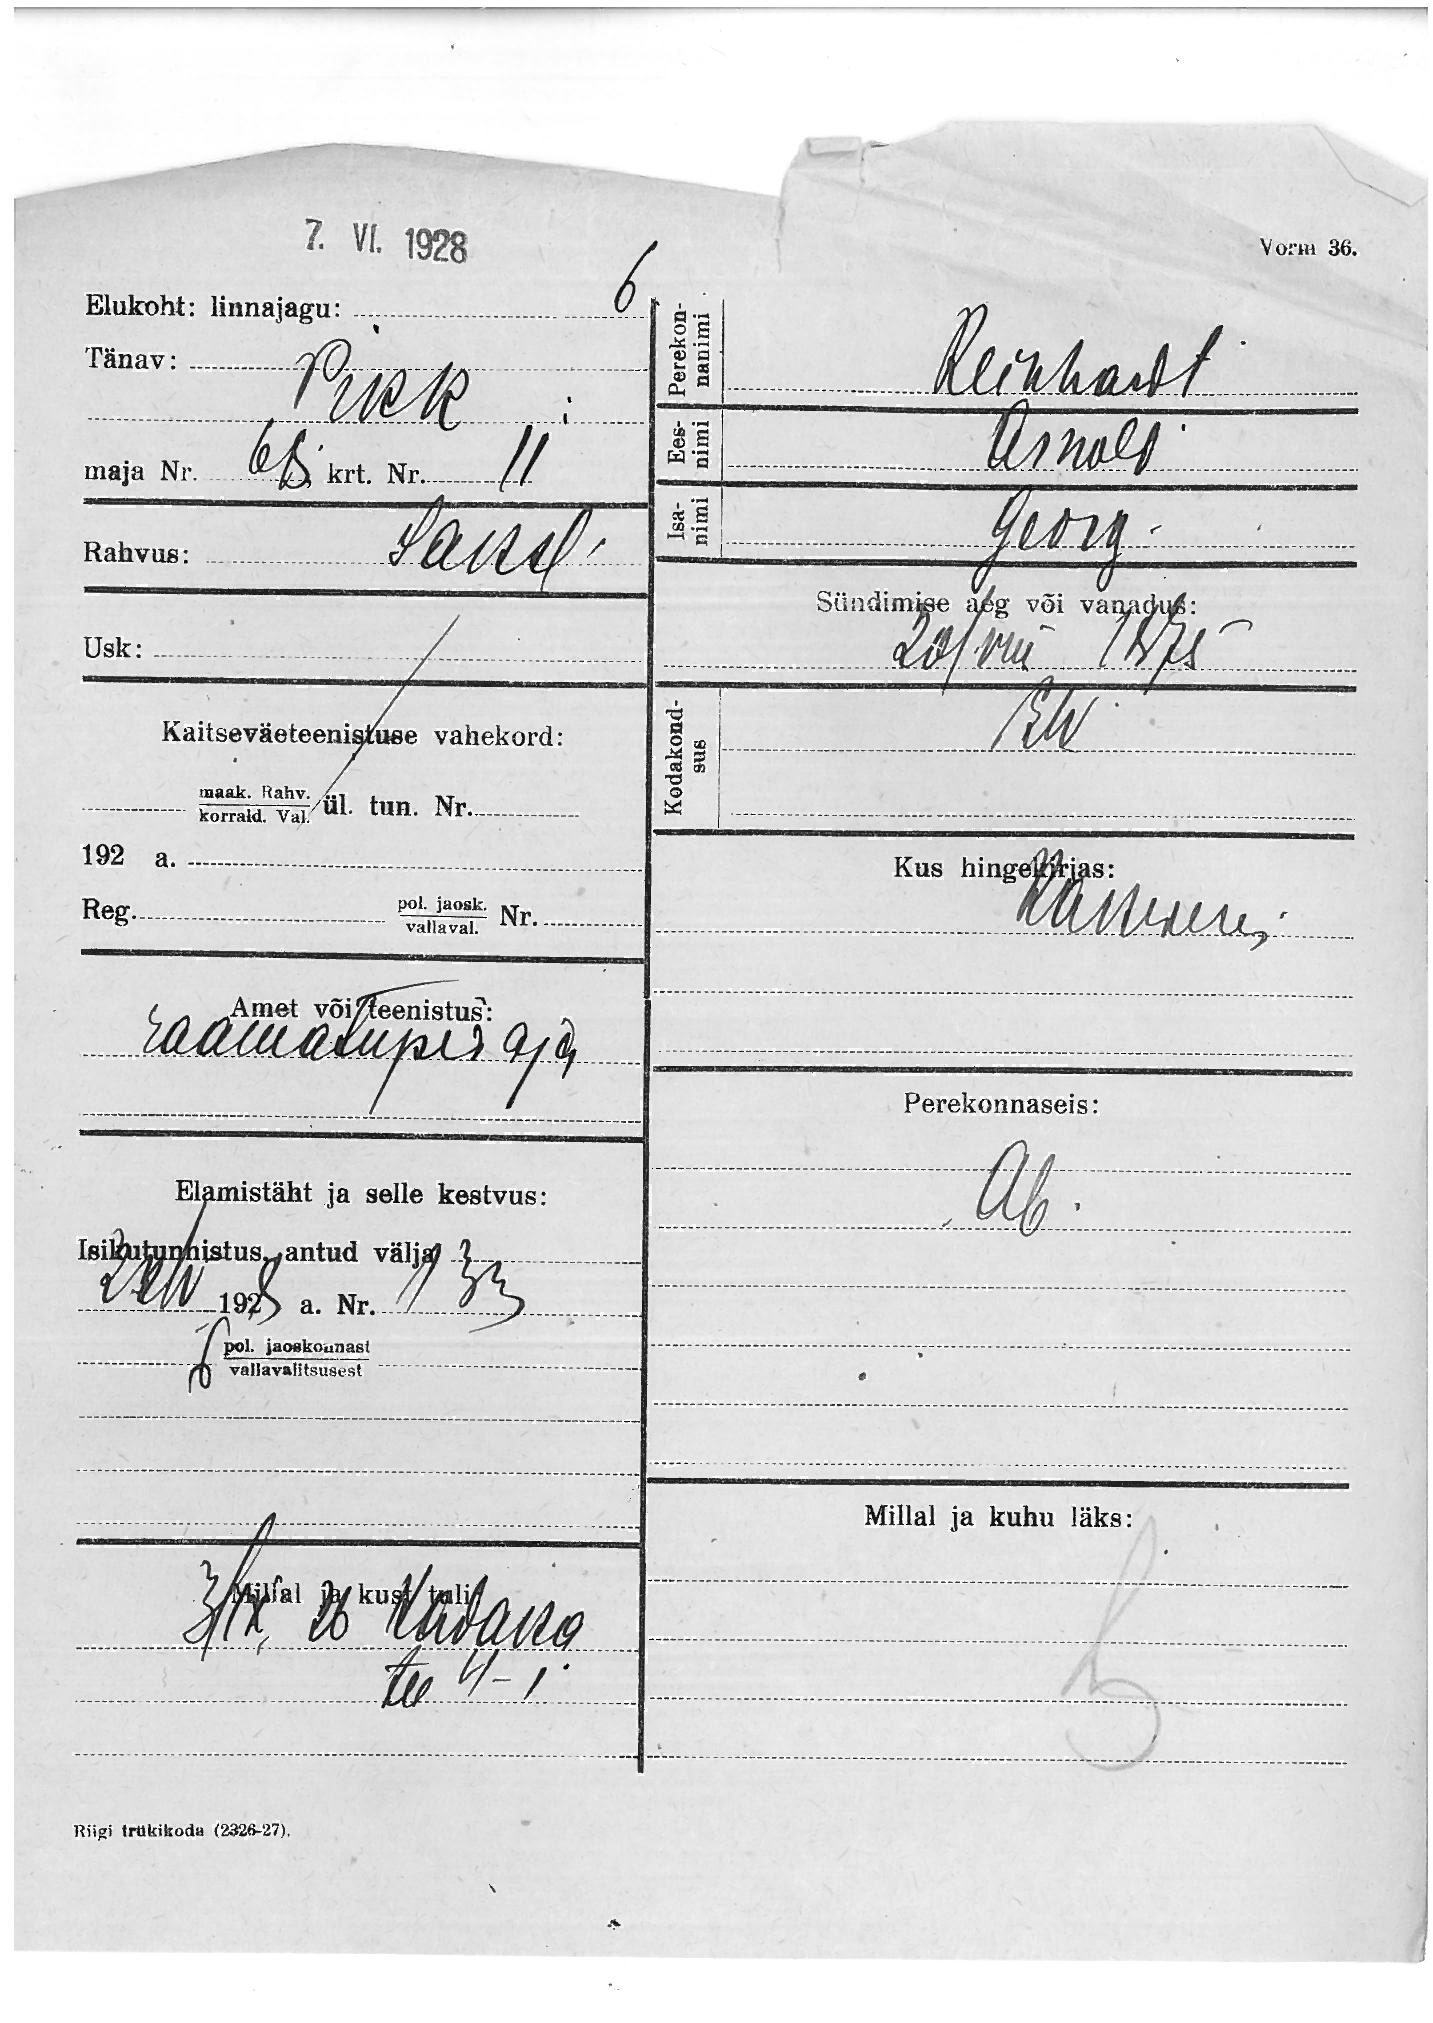 7. VI. 1928
Vorm 36.
Elukoht: linnajagu: 6
Tänav: Pikk
maja Nr. 68, krt. Nr. 11
Rahvus: Saksl.
Usk:
Kaitseväeteenistuse vahekord:
maak. Rahv.
korrald. Val. ül. tun. Nr.
192 a.
Reg. pol. jaosk.
vallaval. Nr.
Amet või teenistus:
raamatupidaja
Elamistäht ja selle kestvus:
Isikutunnistus, antud välja
1928 a. Nr. 133
6 pol. jaoskonnast
vallavalitsusest
Millal ja kust tuli
3/IX 26 Kadaka
tee 4-1
Riigi trükikoda (2326-27).
Perekon-
nanimi
Reinhardt
Ees-
nimi
Arnold
Isa-
nimi
Georg
Sündimise aeg või vanadus:
20/VIII 1875
Kodakond-
sus
EW
Kus hingekirjas:
Perekonnaseis:
Ab.
Millal ja kuhu läks: